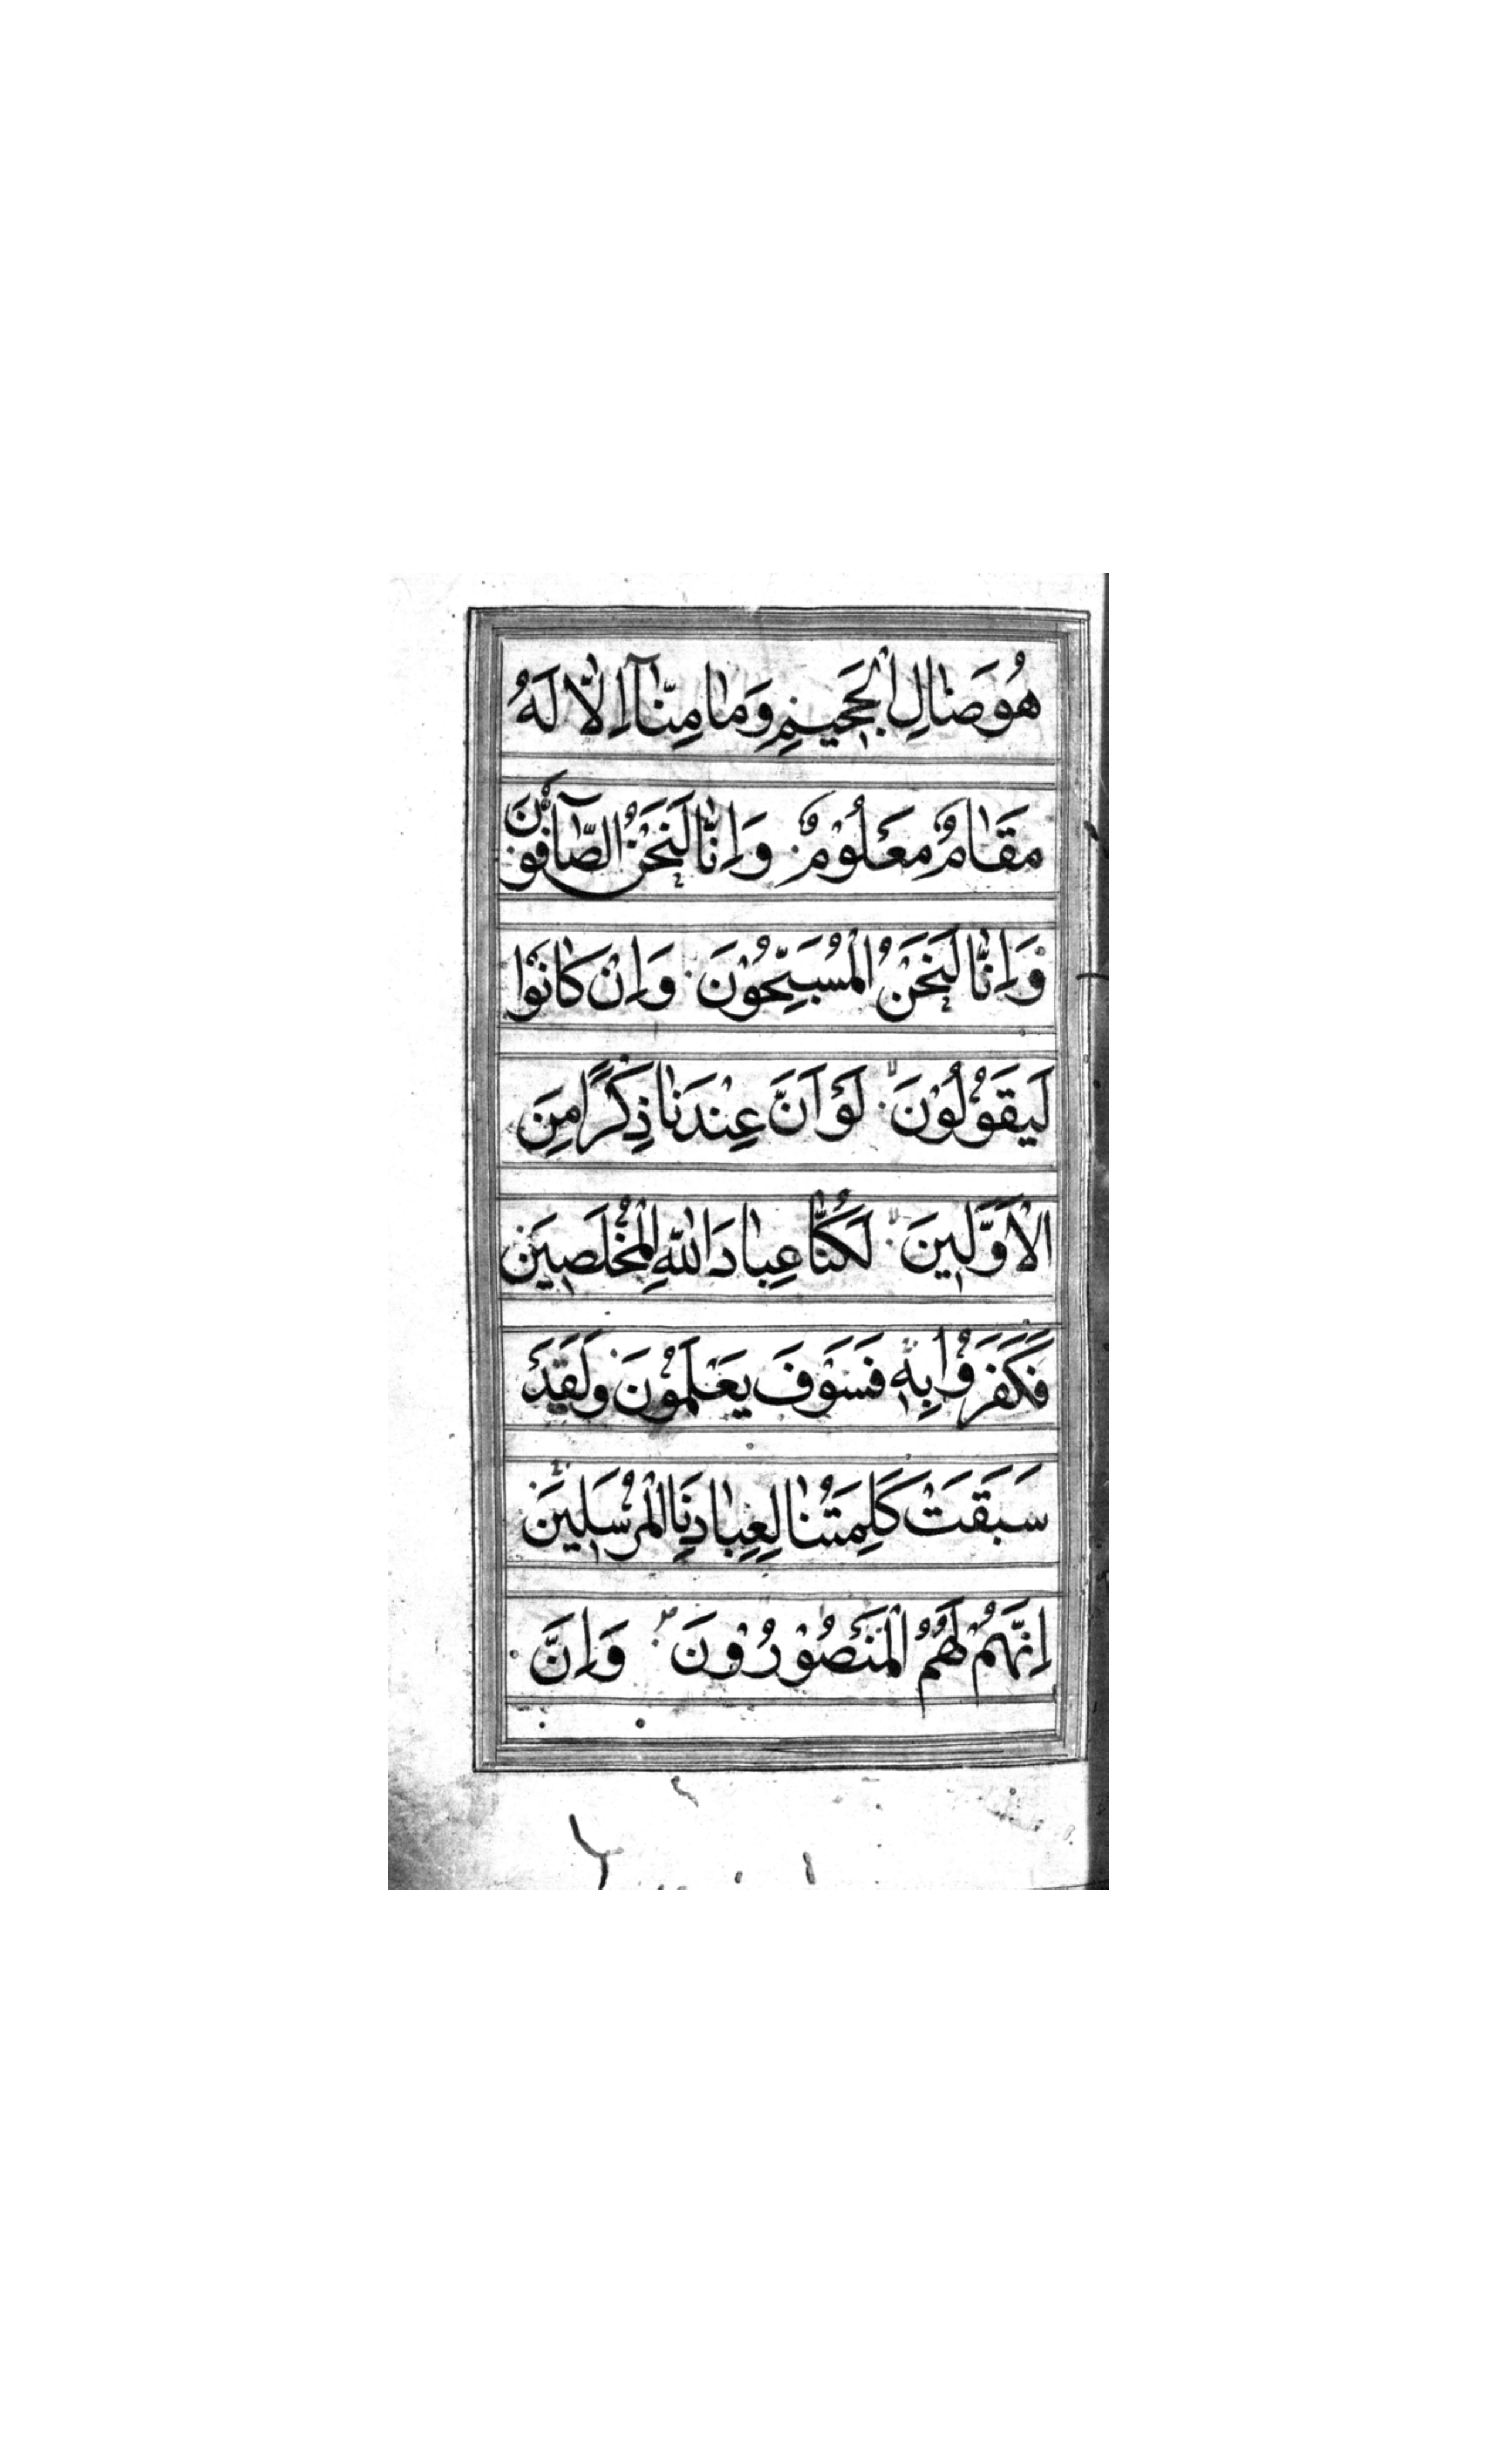 هُوَ صَالِ الْجَحِيمِ وَمَا مِنَّآ اِلَّا لَهُ
مَقَامٌ مَعْلُوْمٌ وَاِنَّا لَنَحْنُ الصَّآفُّوْنَ
وَاِنَّا لَنَحْنُ الْمُسَبِّحُوْنَ وَاِنْ كَانُوْا
لَيَقُوْلُوْنَ لَوْ اَنَّ عِنْدَنَا ذِكْرًا مِنَ
الْاَوَّلِينَ لَكُنَّا عِبَادَ اللّٰهِ الْمُخْلَصِينَ
فَكَفَرُوْا بِهٖ فَسَوْفَ يَعْلَمُوْنَ وَلَقَدْ
سَبَقَتْ كَلِمَتُنَا لِعِبَادِنَا الْمُرْسَلِينَ
اِنَّهُمْ لَهُمُ الْمَنْصُوْرُوْنَ وَاِنَّ